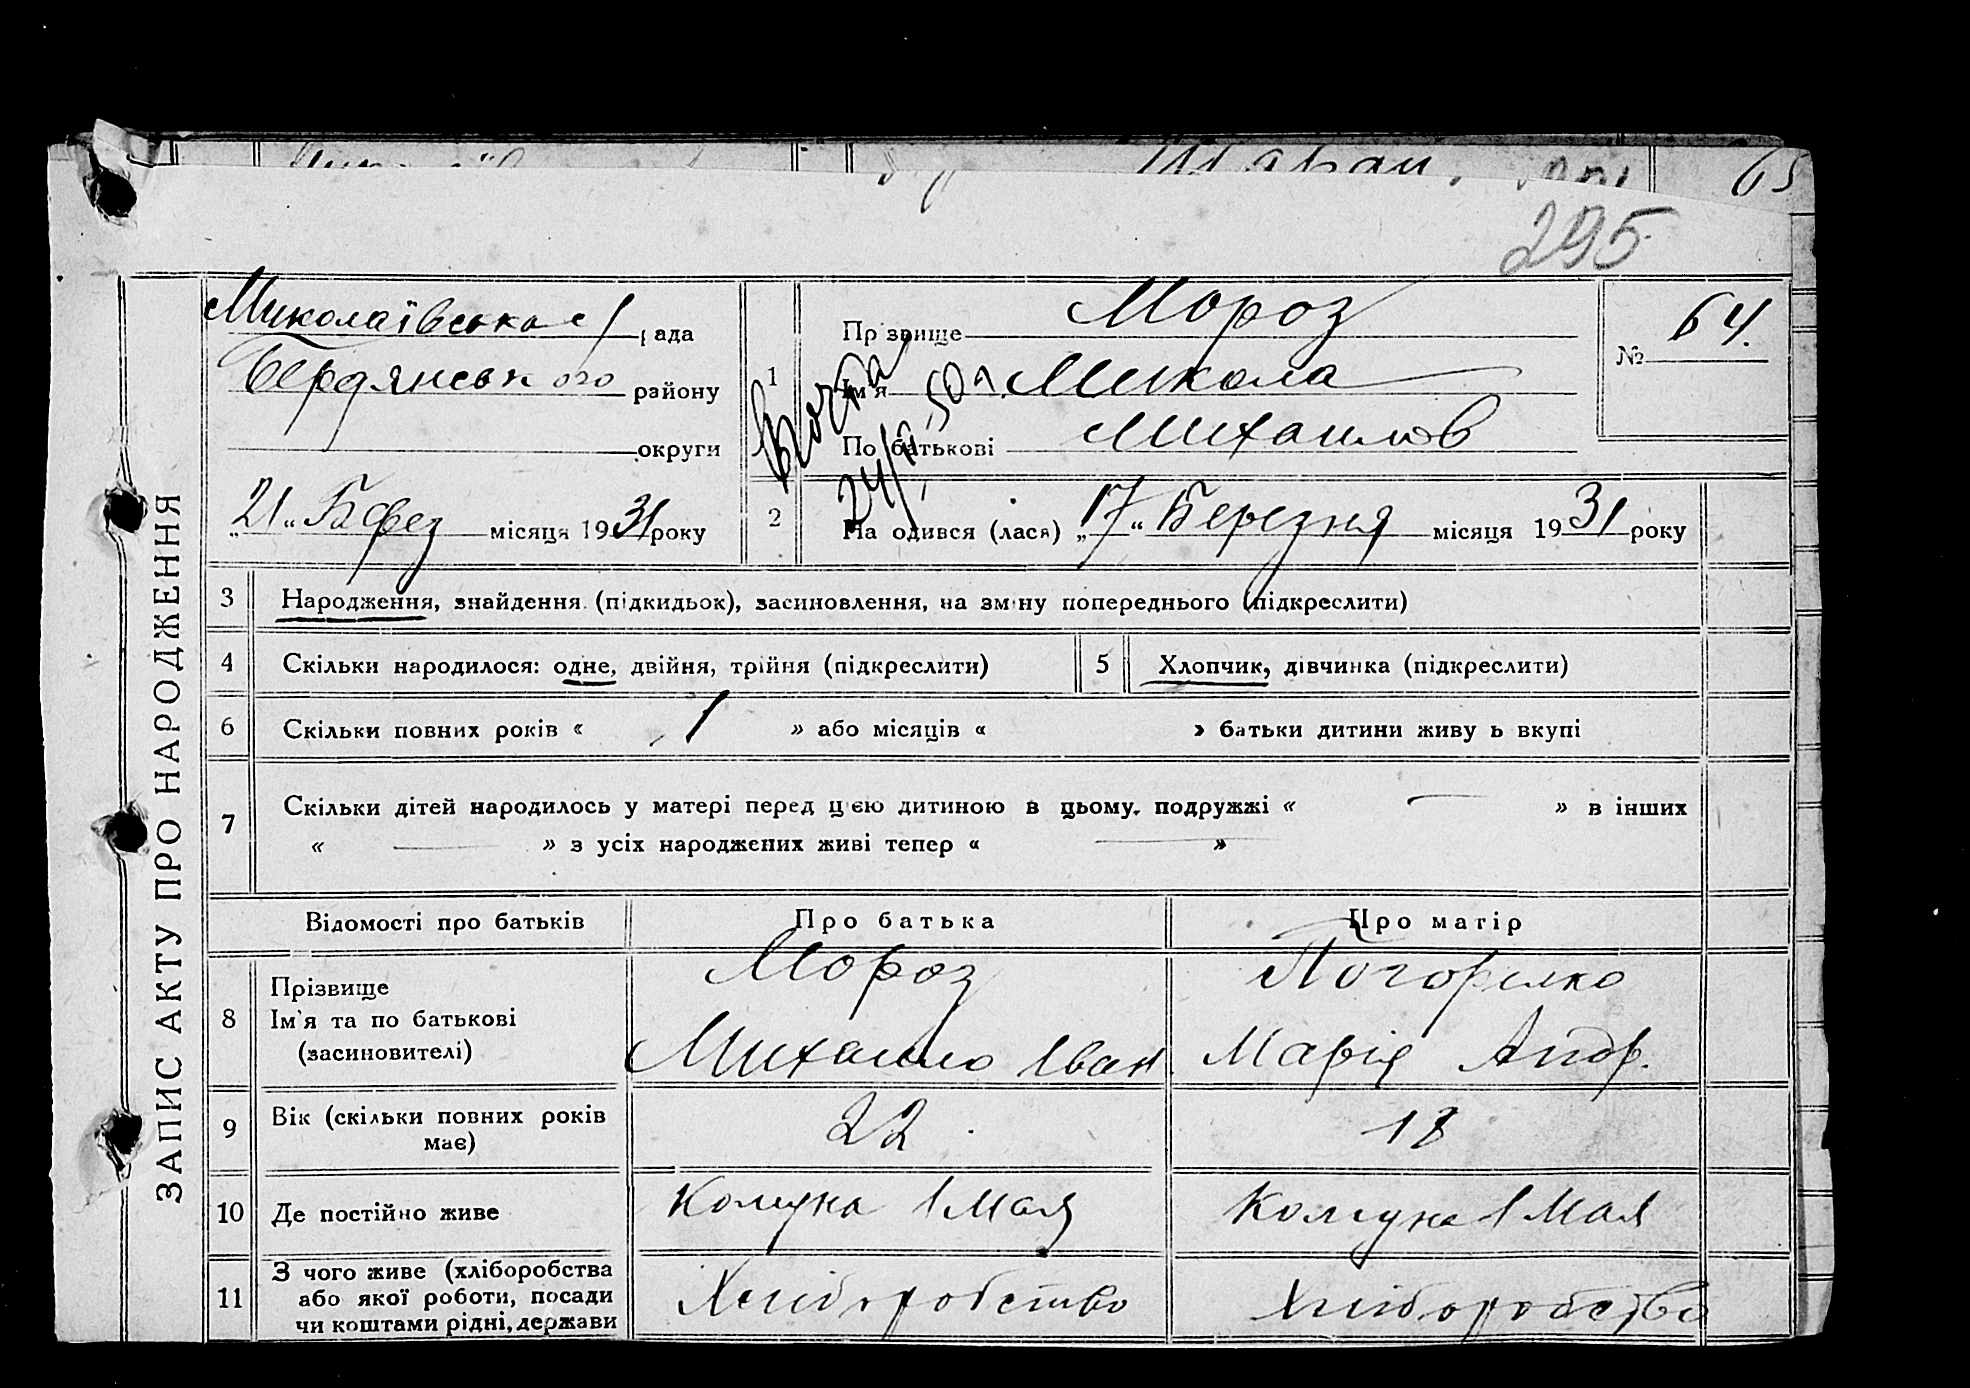 65
295
Миколаївська с/рада
Бердянського району
округи
„21“ місяця 1931 року
№ 64.
1
Прізвище Мороз
Ім'я Микола
По батькові Михаилов
2
На одився (лася) „17“ Березня місяця 1931 року
ЗАПИС АКТУ ПРО НАРОДЖЕННЯ
3 Народження, знайдення (підкидьок), засиновлення, на зміну попереднього (підкреслити)
4 Скільки народилося: одне, двійня, трійня (підкреслити)
5 Хлопчик, дівчинка (підкреслити)
6 Скільки повних років « 1 » або місяців « » батьки дитини живу ь вкупі
7 Скільки дітей народилось у матері перед цією дитиною в цьому подружжі « — » в інших
« — » з усіх народжених живі тепер « — »
Відомості про батьків Про батька Про матір
8 Прізвище
Ім'я та по батькові
(засиновителі)
Мороз
Михаило Іван
Погорілко
Марія Андр.
9 Вік (скільки повних років
має)
22
18
10 Де постійно живе Комуна 1 Мая Комуна 1 Мая
11 З чого живе (хліборобства
або якої роботи, посади
чи коштами рідні, держави
Хліборобство
Хліборобство